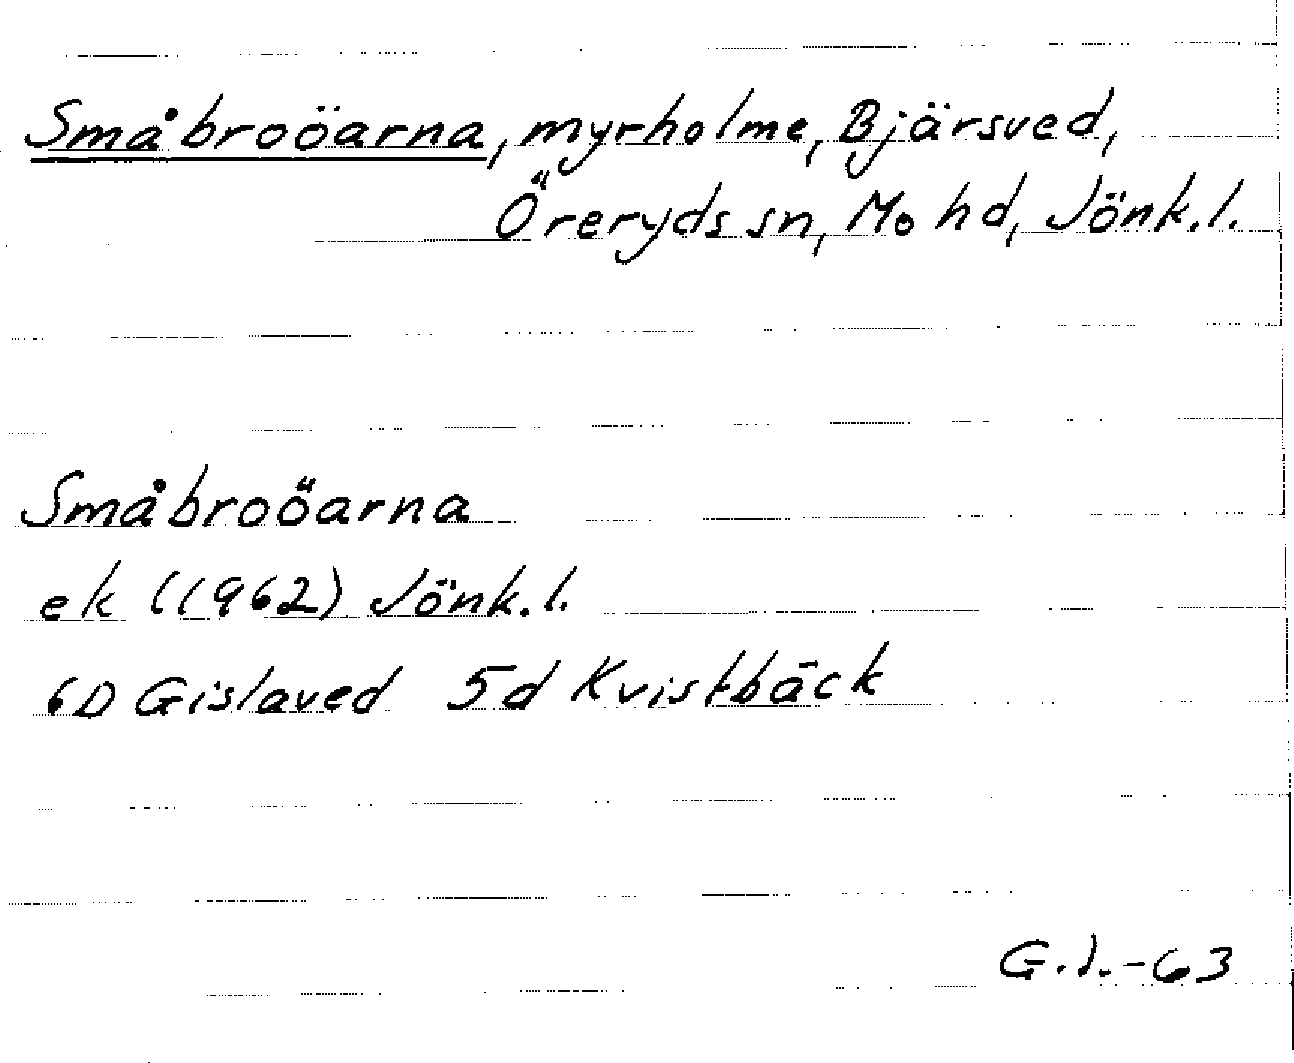 Småbroöarna, myrholme, Bjärsved,
Öreryds sn, Mo hd, Jönk.l.
Småbroöarna
ek (1962) Jönk.l.
6D Gislaved 5d Kvistbäck
G.I.-63